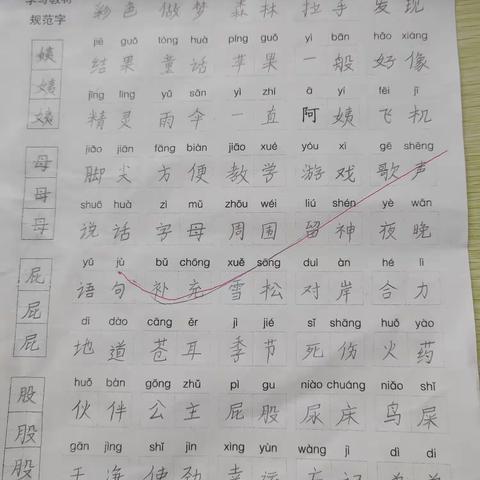 学习教材
规范字
彩色 做梦 森林 拉手 发现
jié guǒ tóng huà píng guǒ yì bān hǎo xiàng
姨 结果 童话 苹果 一般 好像
jīng líng yǔ sǎn yì zhí ā yí fēi jī
姨 姨 精灵 雨伞 一直 阿姨 飞机
jiǎo jiān fāng biàn jiāo xué yóu xì gē shēng
母 脚尖 方便 教学 游戏 歌声
shuō huà zì mǔ zhōu wéi liú shén yè wǎn
母 母 说话 字母 周围 留神 夜晚
yǔ jù bǔ chōng xuě sōng duì àn hé lì
屁 语句 补充 雪松 对岸 合力
dì dào cāng ěr jì jié sǐ shāng huǒ yào
屁 屁 地道 苍耳 季节 死伤 火药
huǒ bàn gōng zhǔ pì gu niào chuáng niǎo shǐ
股 伙伴 公主 屁股 尿床 鸟屎
gān jìng shǐ jìn xìng yùn wàng jì dì di
股 股